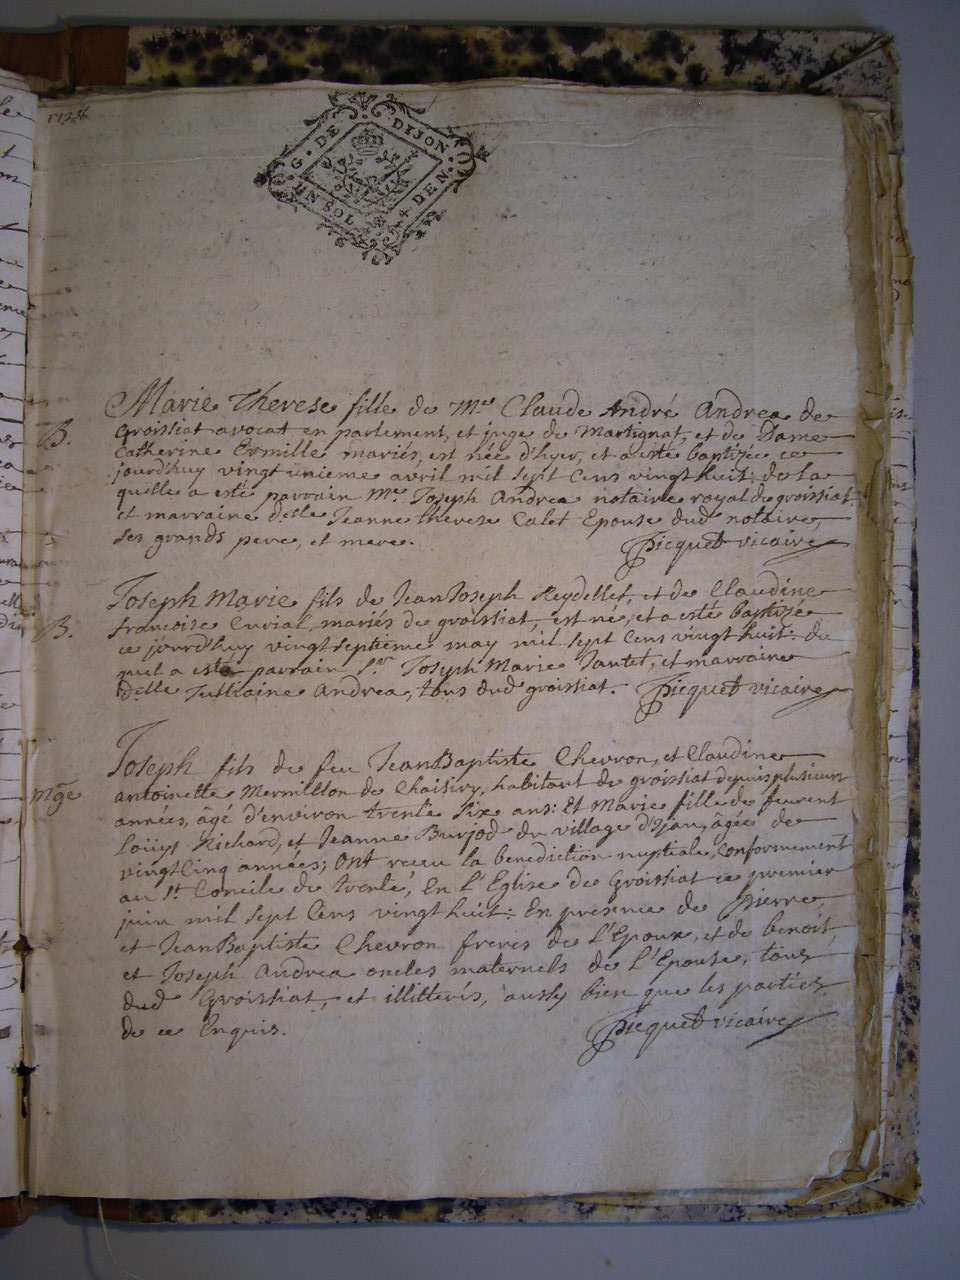 1728
G. DE DIJON
UN SOL
4 DEN.
Marie Therese fille de Mre Claude André Andrea de
B.
Groissiat avocat en parlement, et juge de Martignat, et de Dame
Catherine Ermille mariés, est née d'hyer, et a esté baptizée ce
jourdhuy vingt unieme avril mil sept cens vingt huit: de la
quelle a esté parrain Me Joseph Andrea notaire royal de groissiat
et marraine delle Jeanne therese Calet Epouse dud notaire,
ses grands pere, et mere.
Picquet vicaire
Joseph Marie fils de Jean Joseph Reydellet, et de Claudine
B.
francoise Curial mariés de groissiat, est né, et a esté baptizé
ce jourdhuy vingt septieme may mil sept cens vingt huit: du
quel a esté parrain Sr Joseph Marie Jantet, et marraine
Delle Andrea, tous dud groissiat. Picquet vicaire
Joseph fils de feu Jean Baptiste Chevron, et Claudine
mge
antoinette Mermillon de Chaisiry, habitant de groissiat depuis plusieurs
années, âgé d'environ trente six ans: Et Marie fille de feurent
Loüys Richard, et Jeanne Burjod du village d'Ijean, âgée de
vingt cinq années; Ont receu la benediction nuptiale, conformement
au St. Concile de trente, En l'Eglise de Groissiat ce premier
juin mil sept Cens vingt huit: En presence de Pierre
et Jean Baptiste Chevron freres de l'Epoux, et de benoit,
et Joseph Andrea oncles maternels de l'Epouse, tous
dud Groissiat, et illitterés, aussy bien que les parties
de ce Enquis.
Picquet vicaire